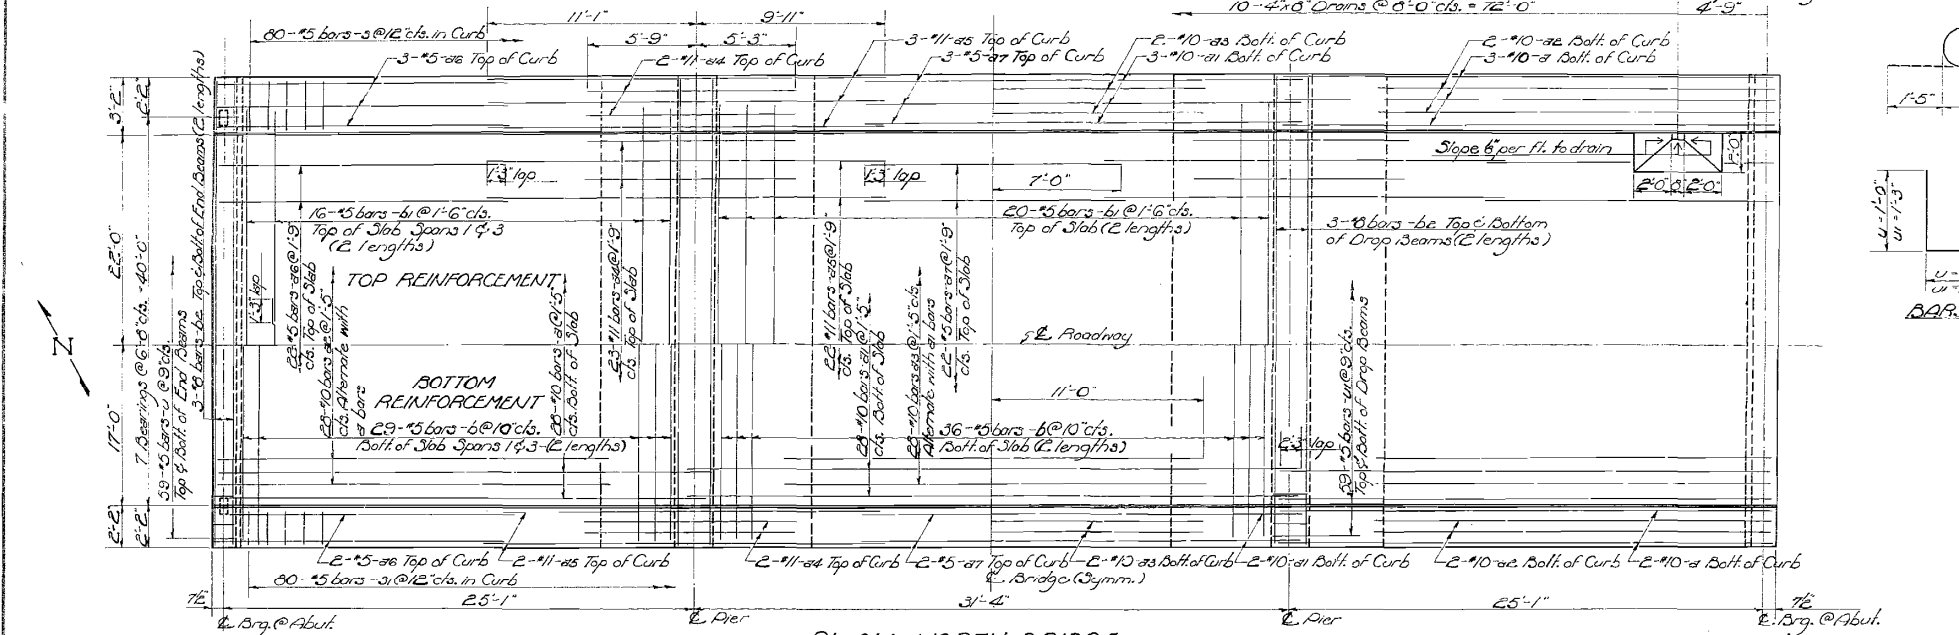 11'-1"
9'-11"
10-4"x8" Drains @ 8'-0" cts. = 72'-0"
4'-9"
80-#5 bars-s @12" cts. in Curb
5'-9"
5'-3"
3-#11-a5 Top of Curb
2-#10-a3 Bott. of Curb
2-#10-a2 Bott. of Curb
3-#5-a6 Top of Curb
2-#11-a4 Top of Curb
3-#5-a7 Top of Curb
3-#10-a1 Bott. of Curb
3-#10-a Bott. of Curb
1'-5"
3'-2"
2'-2"
Slope 6" per ft. to drain
2'-0"
1'-3" lap
1'-3" lap
7'-0"
2'-0" 8" 2'-0"
16-#5 bars-b1 @ 1'-6" cts.
Top of Slab Spans 1 & 3
(2 lengths)
20-#5 bars-b1 @ 1'-6" cts.
Top of Slab (2 lengths)
3-#8 bars-b2 Top & Bottom
of Drop Beams (2 lengths)
u = 1'-0"
u1 = 1'-3"
22'-0"
TOP REINFORCEMENT
1'-3" lap
N
℄ Roadway
BAR
7 Bearings @ 6'-8" cts. = 40'-0"
59-#5 bars-u @ 9" cts.
Top & Bott. of End Beams
3-#8 bars-b2 Top & Bott. of End Beams (2 lengths)
23-#5 bars-a6 @ 1'-9"
cts. Top of Slab
28-#10 bars-a2 @ 1'-5"
cts. Alternate with
a bars
28-#10 bars-a @ 1'-5"
cts. Bott. of Slab
23-#11 bars-a4 @ 1'-9"
cts. Top of Slab
22-#11 bars-a5 @ 1'-9"
cts. Top of Slab
28-#10 bars-a1 @ 1'-5"
cts. Bott. of Slab
28-#10 bars a3 @ 1'-5" cts.
Alternate with a1 bars
22-#5 bars-a7 @ 1'-9"
cts. Top of Slab
59-#5 bars-u1 @ 9" cts.
Top & Bott. of Drop Beams
BOTTOM
REINFORCEMENT
11'-0"
17'-0"
29-#5 bars-b @ 10" cts.
Bott. of Slab Spans 1 & 3-(2 lengths)
36-#5 bars-b @ 10" cts.
Bott. of Slab (2 lengths)
2'-3" lap
2'-2"
2'-2"
2-#5-a6 Top of Curb
2-#11-a5 Top of Curb
2-#11-a4 Top of Curb
2-#5-a7 Top of Curb
2-#10-a3 Bott. of Curb
2-#10-a1 Bott. of Curb
2-#10-a2 Bott. of Curb
2-#10-a Bott. of Curb
80-#5 bars-s1 @ 12" cts. in Curb
℄ Bridge (Symm.)
7½"
25'-1"
31'-4"
25'-1"
7½"
℄ Brg. @ Abut.
℄ Pier
℄ Pier
℄ Brg. @ Abut.